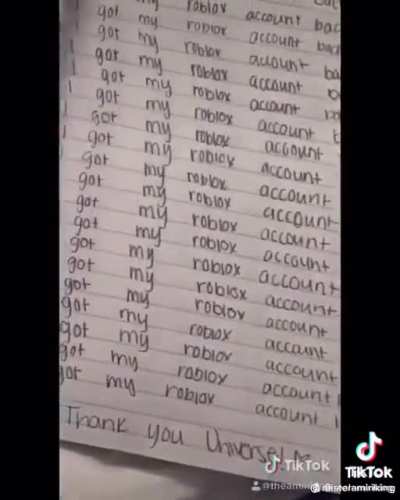 my roblox account bac
got my roblox account bac
got my roblox account ba
got my roblox account
I got my roblox account
I got my roblox account
I got my roblox account
I got my roblox account
got my roblox account
got my roblox account
got my roblox account
got my roblox account
got my roblox account
got my roblox account
got my roblox account
got my roblox account
got my roblox account
got my roblox account
got my roblox account
Thank you Universe!
TikTok
TikTok